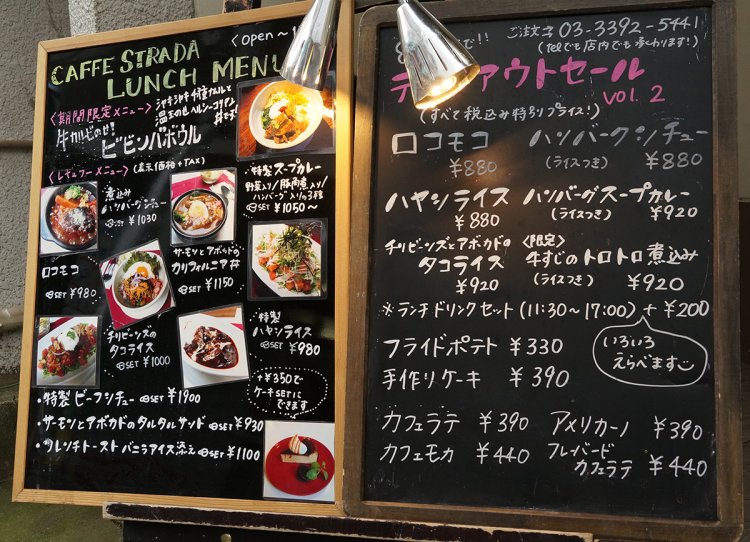 CAFFE STRADA
LUNCH MENU
<open〜
<期間限定メニュー>
牛カルビのせ!
ビビンバボウル
<レギュラーメニュー> (表示価格+TAX)
煮込み
ハンバーグシチュー
SET ¥1030
特製スープカレー
野菜入り/豚肉煮入り/
ハンバーグ入りの3種
SET ¥1050〜
サーモンとアボカドの
カリフォルニア丼
SET ¥1150
ロコモコ
SET ¥980
チリビーンズの
タコライス
SET ¥1000
特製
ハヤシライス
SET ¥980
+¥350で
ケーキSETに
できます
・特製ビーフシチュー SET ¥1900
・サーモンとアボカドのタルタルサンド SET ¥930
・フレンチトースト バニラアイス添え SET ¥1100
ご注文は 03-3392-5441
(telでも店内でも承ります!)
アウトセール
vol.2
(すべて税込み特別プライス!)
ロコモコ
¥880
ハンバーグシチュー
(ライスつき) ¥880
ハヤシライス
¥880
ハンバーグスープカレー
(ライスつき) ¥920
チリビーンズとアボカドの
タコライス
¥920
<限定>
牛すじのトロトロ煮込み
(ライスつき) ¥920
※ランチドリンクセット (11:30〜17:00) + ¥200
いろいろ
えらべます
フライドポテト ¥330
手作りケーキ ¥390
カフェラテ ¥390
アメリカーノ ¥390
カフェモカ ¥440
フレーバード
カフェラテ ¥440